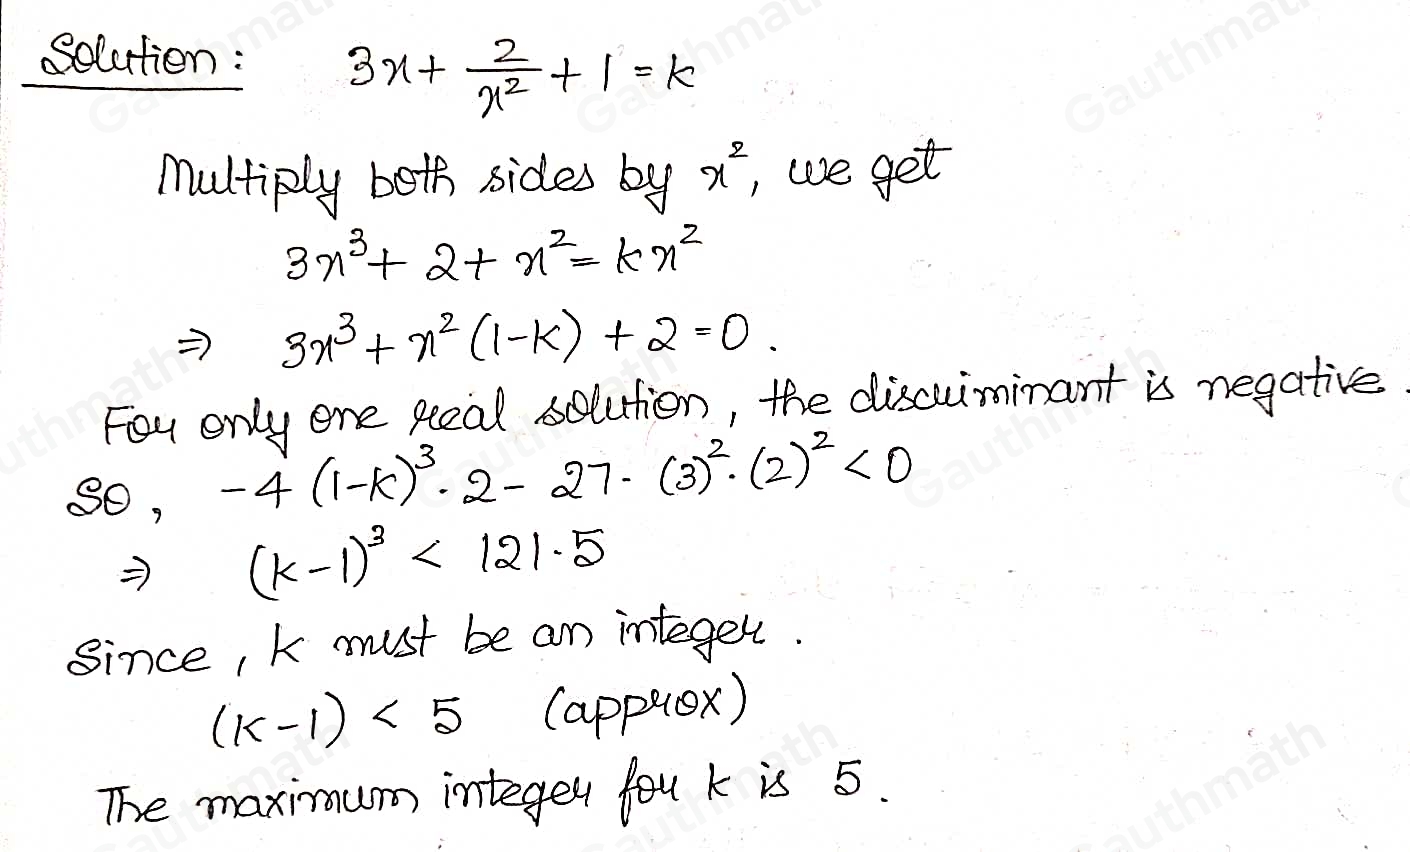 Solution: 3x + 2/x² + 1 = k
Multiply both sides by x², we get
3x³ + 2 + x² = kx²
⇒ 3x³ + x² (1-k) + 2 = 0.
For only one real solution, the discriminant is negative.
So, -4 (1-k)³ · 2 - 27 · (3)² · (2)² < 0
⇒ (k-1)³ < 121.5
Since, k must be an integer.
(k-1) < 5 (approx)
The maximum integer for k is 5.